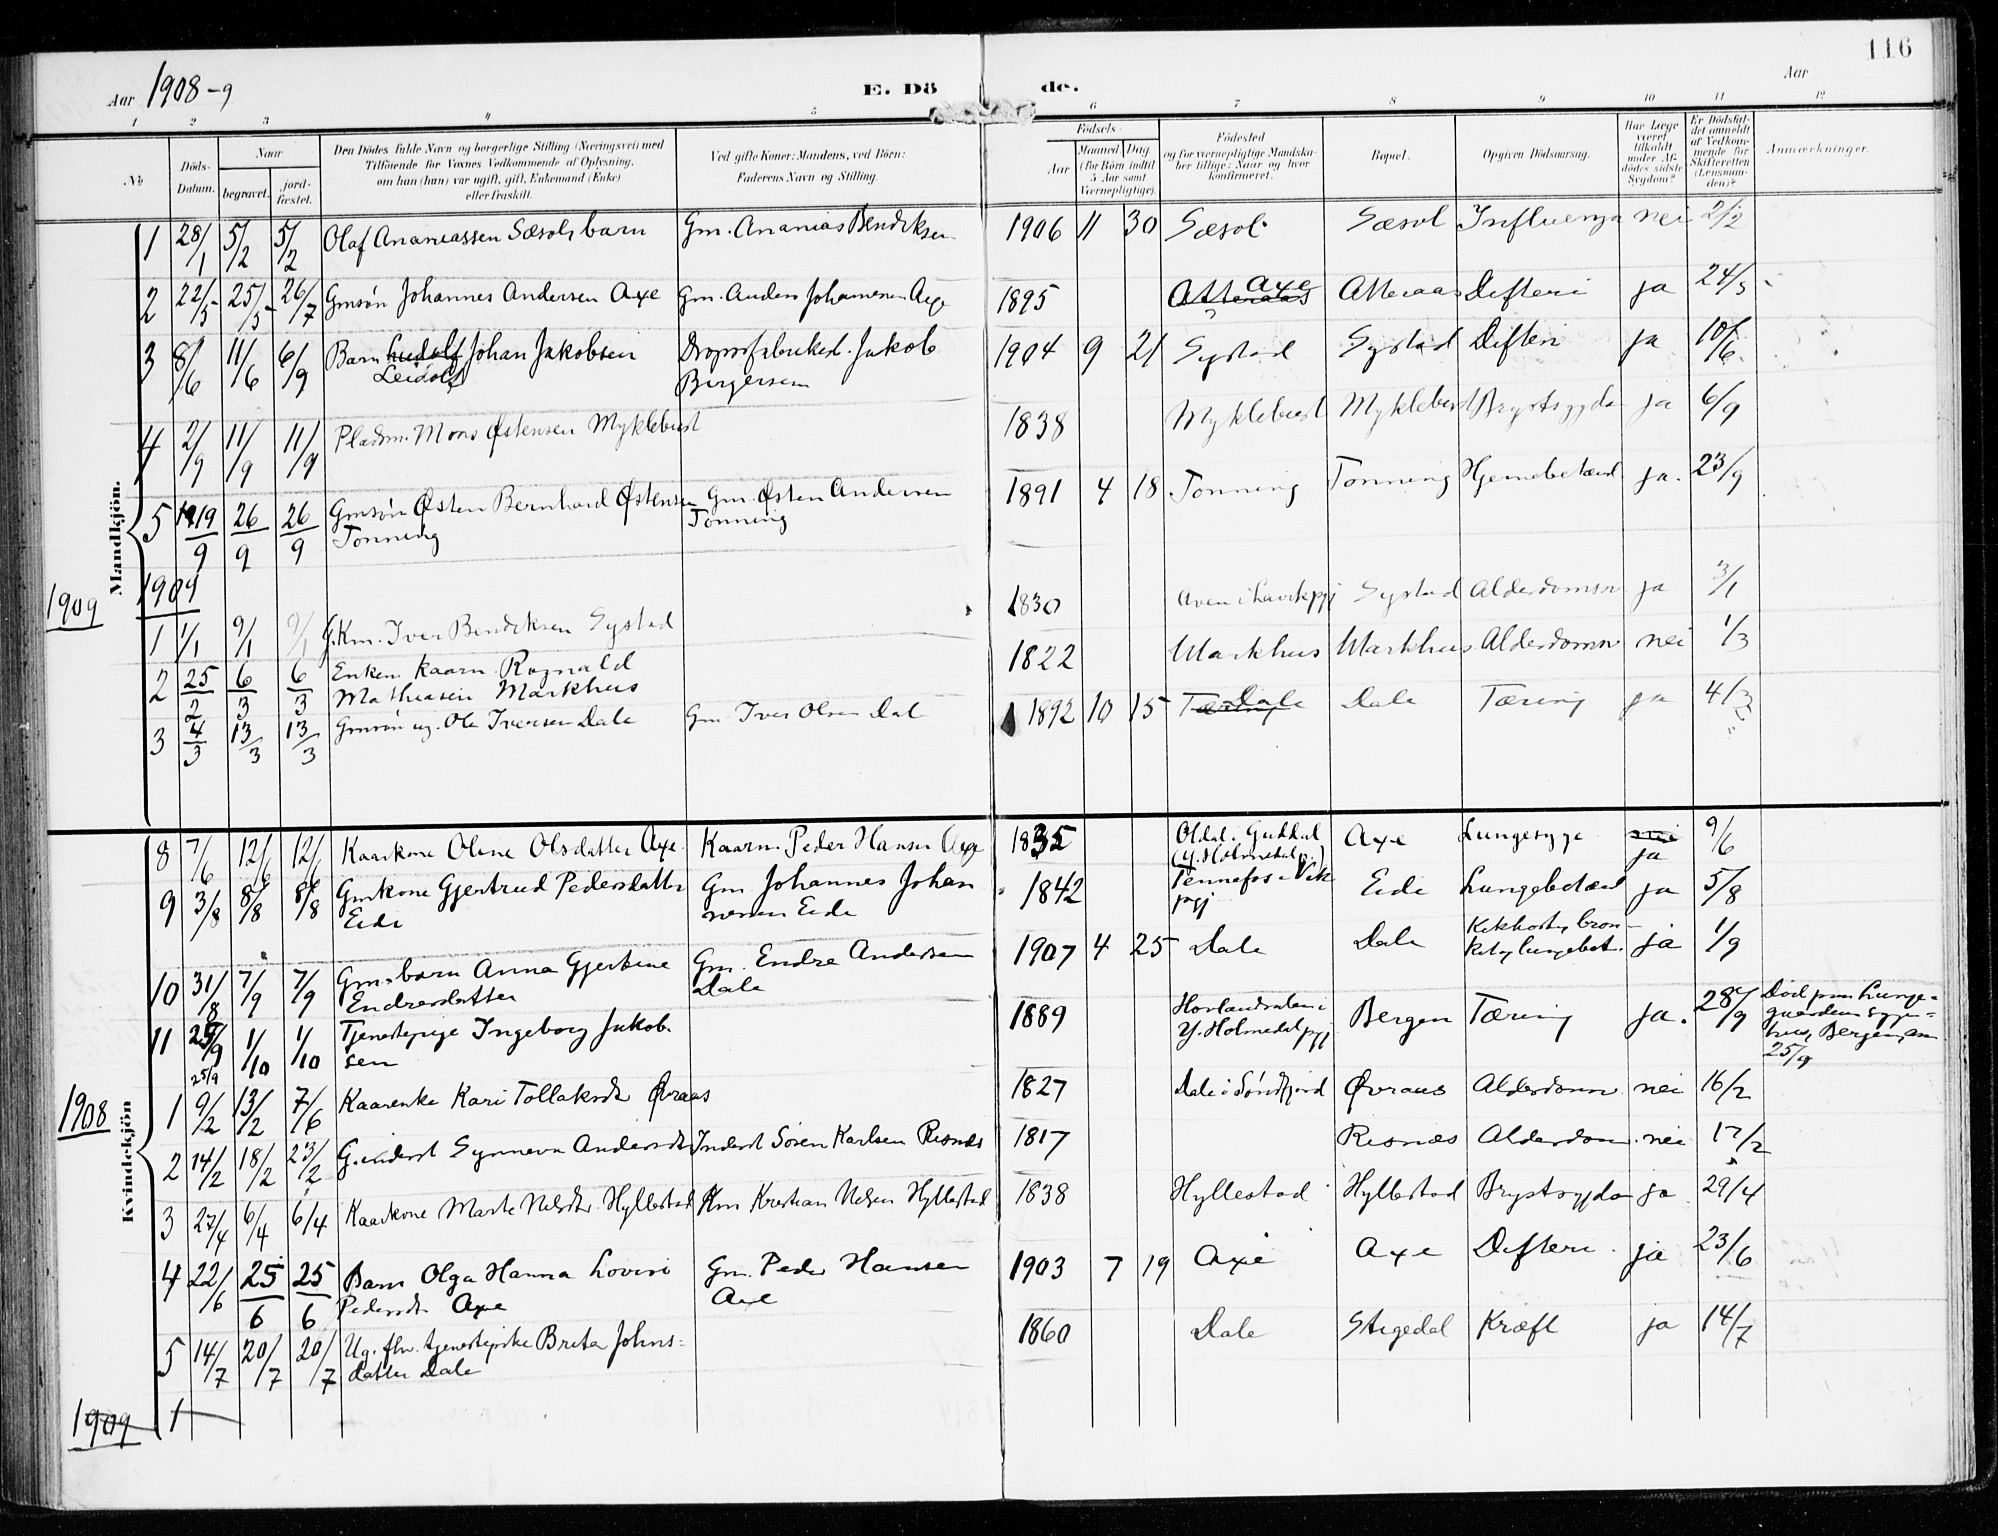 116
Aar 1908-9
E. Dö de.
Aar
1 2 3 4 5 6 7 8 9 10 11 12
No
Döds-Datum.
Naar
begravet.
jord-fæstet.
Den Dödes fulde Navn og borgerlige Stilling (Næringsvei) med
Tilföiende for Voxnes Vedkommende af Oplysning,
om han (hun) var ugift, gift, Enkemand (Enke)
eller fraskilt.
Ved gifte Koner: Mandens, ved Börn:
Faderens Navn og Stilling.
Födsels-
Aar
Maaned Dag
(for Börn indtil
5 Aar samt
Værnepligtige).
Födested
og for værnepligtige Mandska-
ber tillige: Naar og hvor
konfirmeret.
Bopæl.
Opgiven Dödsaarsag.
Har Læge
været
tilkaldt
under Af-
dödes sidste
Sygdom?
Er Dödsfal-
det anmeldt
af Vedkom-
mende for
Skifteretten
(Lensman-
den)?
Anmærkninger.
Mandkjön.
1 28/1 5/2 5/2 Olaf Ananiassen Sæsols barn Gm. Ananias Bendiksen 1906 11 30 Sæsol Sæsol Influenza nei 2/2
2 22/5 25/5 26/7 Gmsøn Johannes Andersen Axe Gm. Anders Johannesen Axe 1895 Atteraas Axe Atteraas Difteri ja 24/5
3 8/6 11/6 6/9 Barn Ludolf Johan Jakobsen Dropsfabrikead. Jakob 1904 9 21 Systad Systad Difteri ja 10/6
Leidolf Birgersen
4 2/9 11/9 11/9 Pladsm. Mons Østensen Myklebust 1838 Myklebust Myklebust Brystsygdo ja 6/9
5 19/9 26/9 26/9 Gmsøn Østen Bernhard Østensen Gm. Østen Andersen 1891 4 18 Tonning Tonning Hjernebetænd ja. 23/9
Tonning Tonning
1909 1909
1 1/1 9/1 9/1 G.Km. Iver Bendiksen Systad 1830 Aven i Lavikpgj Systad Alderdomsv ja 3/1
2 25/2 6/3 6/3 Enkem. kaarm. Rognald 1822 Markhus Markhus Alderdomsv nei 1/3
Mathiasen Markhus
3 4/3 13/3 13/3 Gmsøn ug. Ole Iversen Dale Gm. Iver Olsen Dale 1892 10 15 Tæring Dale Dale Tæring ja 4/3
Kvindekjön
8 7/6 12/6 12/6 Kaarkone Oline Olsdatter Axe Kaarm. Peder Hansen Axe 1835 Oldal. Guddal Axe Lungesyge nei 9/6
(Y. Holmedal p.) ja
9 3/8 8/8 8/8 Gmkone Gjertrud Pedersdatter Gm Johannes Johan 1842 Tennefos i Vik Eide Lungebetænd ja 5/8
Eide nesen Eide pgj
10 31/8 7/9 7/9 Gm.barn Anna Gjertine Gm. Endre Andersen 1907 4 25 Dale Dale Kikhoste, bron- ja 1/9
Endresdatter Dale kit og lungebet.
11 25/9 1/10 1/10 Tjenestepige Ingeborg Jakob- 1889 Hovlandsdalen i Bergen Tæring ja. 28/9 Død paa Lunge-
sen Y. Holmedal pgj gaardens syge-
25/9 hus, Bergen, am
25/9
1908
1 9/2 13/2 7/6 Kaarenke Kari Tollaksdtr Øvraas 1827 Dale i Søndfjord Øvraas Alderdomsv nei 16/2
2 14/2 18/2 23/2 G.inderst Synneva Andersdtr Inderst Søren Karlsen Risnes 1817 Risnæs Alderdom nei 17/2
3 27/4 6/4 6/4 Kaarkone Marte Nilsdtr. Hyllestad Km Kristian Nilsen Hyllestad 1838 Hyllestad Hyllestad Brystsygdo ja 29/4
4 22/6 25/6 25/6 Barn Olga Hanna Lovise Gm. Peder Hansen 1903 7 19 Axe Axe Difteri ja 23/6
Pedersdtr Axe Axe
5 14/7 20/7 20/7 Ug. fhv. tjenestepike Brita Johns- 1860 Dale Stigedal Kræft ja 14/7
datter Dale
1909 1